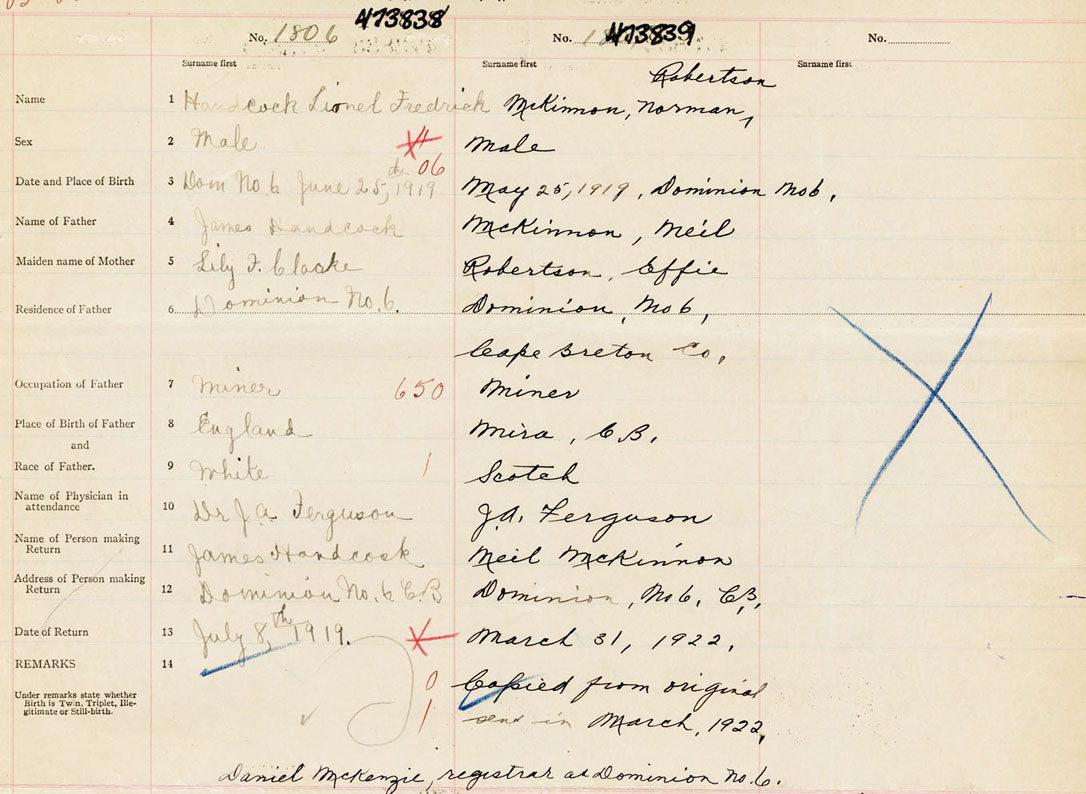 473838 473839
No. 1806 No. No.
Surname first Surname first Surname first
Robertson
Name 1 Handcock Lionel Fredrick McKinnon, Norman,
Sex 2 Male Male
06
Date and Place of Birth 3 Dom No 6 June 25,th 1919 May 25, 1919, Dominion No 6,
Name of Father 4 James Handcock McKinnon, Neil
Maiden name of Mother 5 Lily F. Clarke Robertson, Effie
Residence of Father 6 Dominion No. 6. Dominion, No 6,
Cape Breton Co,
Occupation of Father 7 Miner 650 Miner
Place of Birth of Father 8 England Mira, C.B.
and
Race of Father. 9 White 1 Scotch
Name of Physician in
attendance 10 Dr J. A. Ferguson J. A. Ferguson
Name of Person making
Return 11 James Handcock Neil McKinnon
Address of Person making
Return 12 Dominion No. 6 C.B Dominion, No 6, C.B,
Date of Return 13 July 8,th 1919. March 31, 1922,
REMARKS 14
0 Copied from original
Under remarks state whether
Birth is Twin, Triplet, Ille-
gitimate or Still-birth.
1 send in March, 1922,
Daniel McKenzie, registrar at Dominion No. 6.